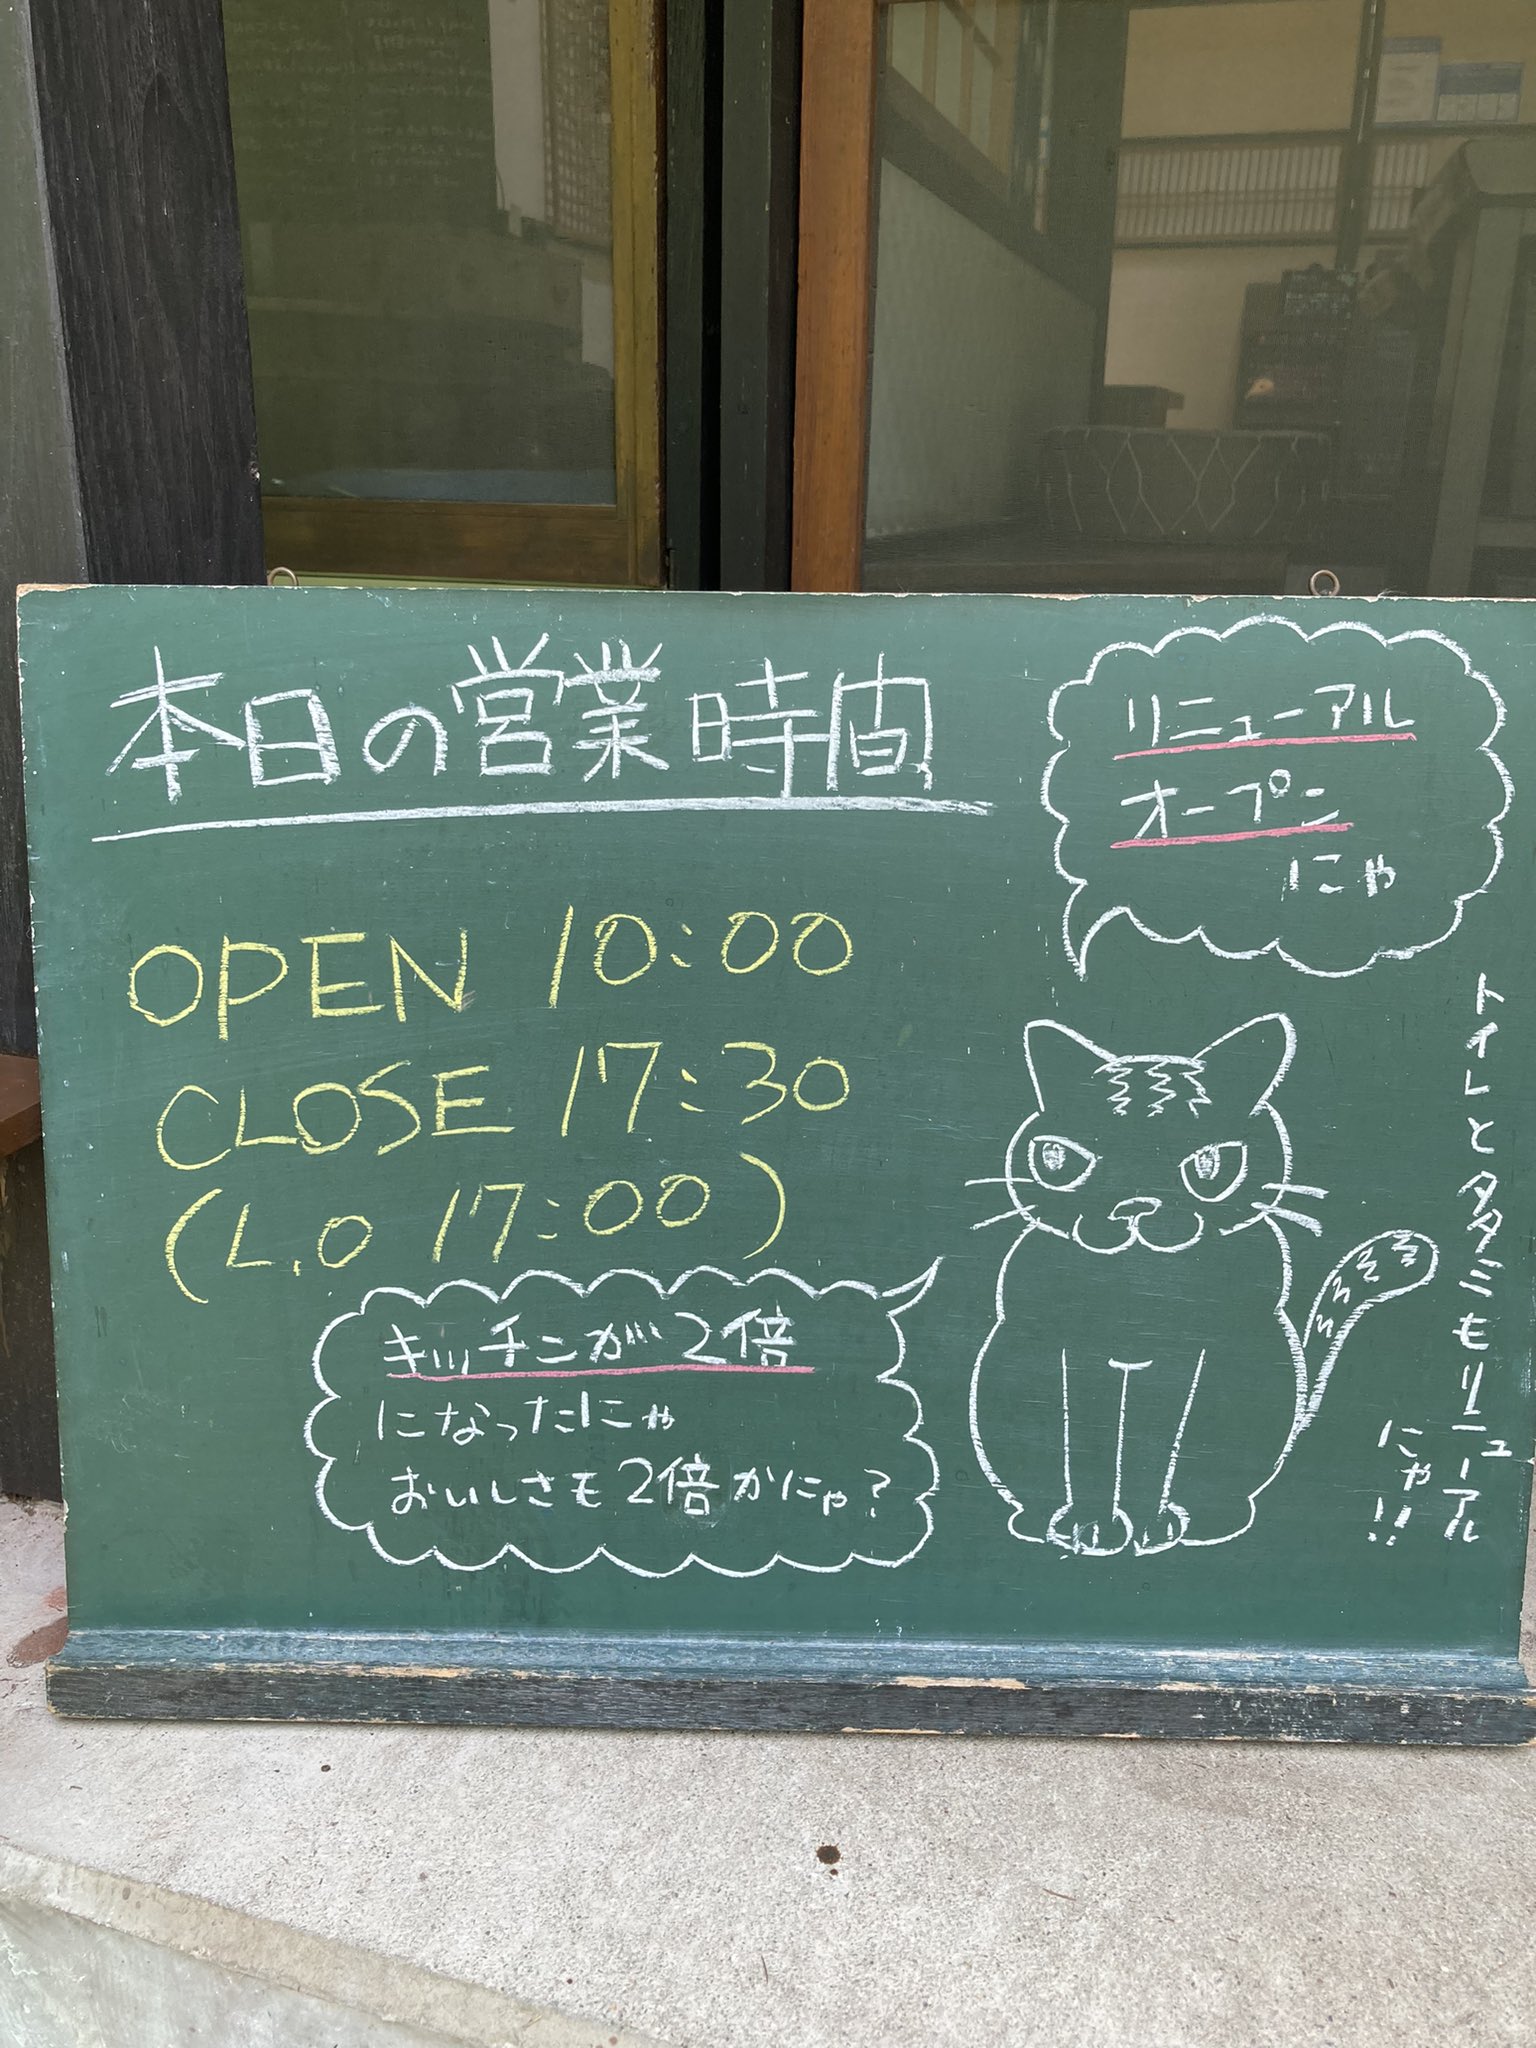 本日の営業時間
OPEN 10:00
CLOSE 17:30
(L.O 17:00)
リニューアル
オープン
にゃ
キッチンが2倍
になったにゃ
おいしさも2倍かにゃ?
トイレとタタミもリニューアル
にゃ!!